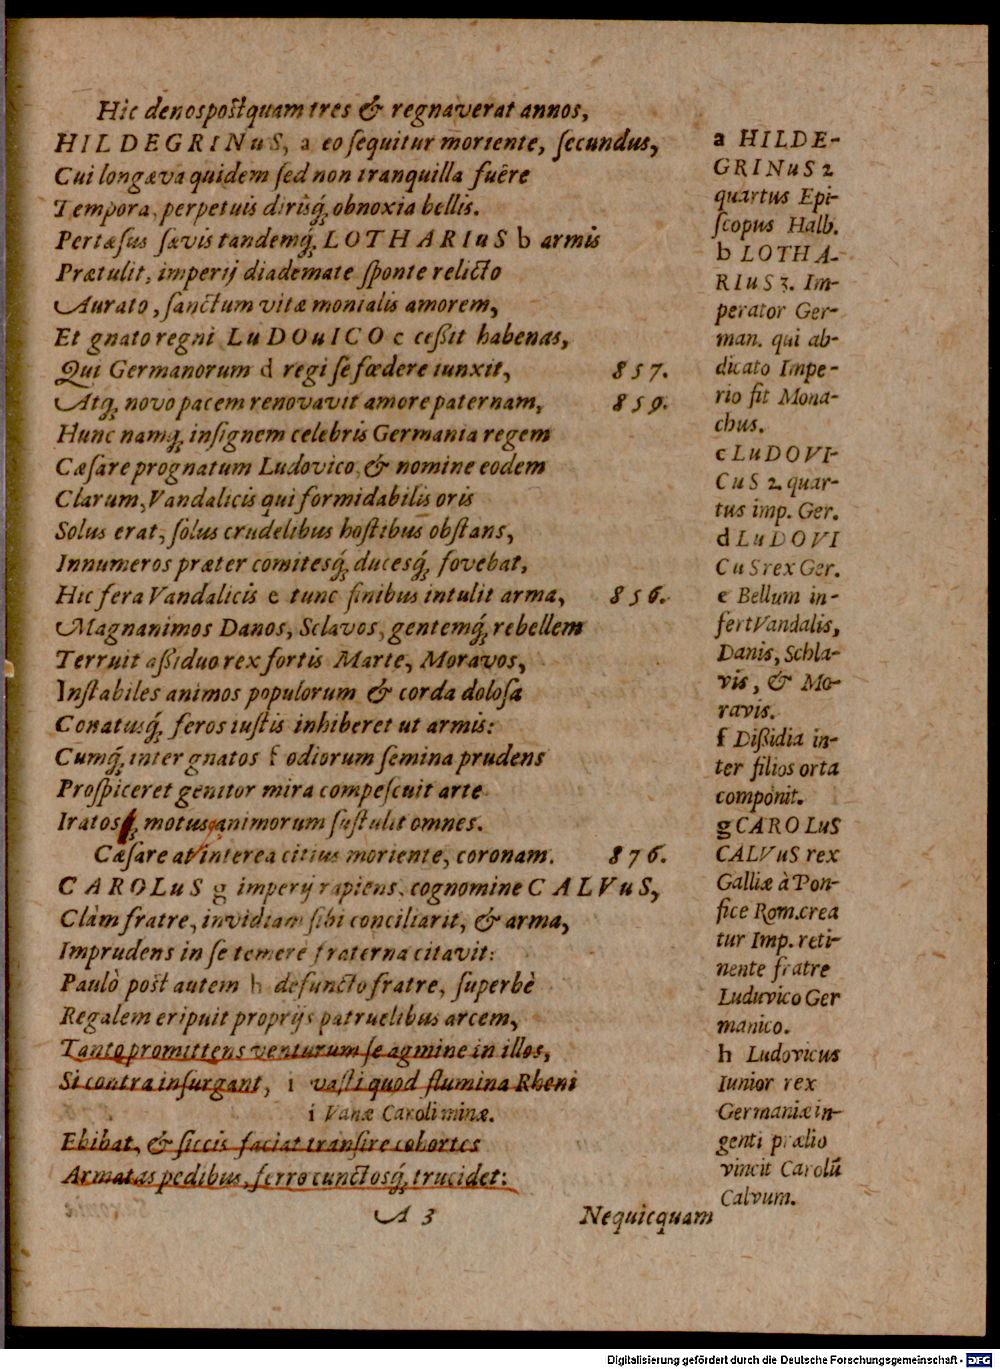 Hic denos postquam tres & regnaverat annos,
HILDEGRINuS, a eo sequitur moriente, secundus,
Cui longæva quidem sed non tranquilla fuêre
Tempora, perpetuis dirisq́; obnoxia bellis.
Pertæsus sævis tandemq́; LOTHARIuS b armis
Prætulit, imperij diademate sponte relicto
Aurato, sanctum vitæ monialis amorem,
Et gnato regni LuDOuICO c ceßit habenas,
Qui Germanorum d regi se fœdere iunxit, 857.
Atq; novo pacem renovavit amore paternam, 859.
Hunc namq; insignem celebris Germania regem
Cæsare prognatum Ludovico, & nomine eodem
Clarum, Vandalicis qui formidabilis oris
Solus erat, solus crudelibus hostibus obstans,
Innumeros præter comitesq́; ducesq́; fovebat,
Hic fera Vandalicis e tunc finibus intulit arma, 856.
Magnanimos Danos, Sclavos, gentemq́; rebellem
Terruit aßiduo rex fortis Marte, Moravos,
Instabiles animos populorum & corda dolosa
Conatusq́; feros iustis inhiberet ut armis:
Cumq́; inter gnatos f odiorum semina prudens
Prospiceret genitor mira compescuit arte
Iratosq́; motus animorum sustulit omnes.
Cæsare at interea citius moriente, coronam. 876.
CAROLuS g imperij rapiens, cognomine CALVuS,
Clàm fratre, invidiam sibi conciliarit, & arma,
Imprudens in se temerè fraterna citavit:
Paulò post autem h defuncto fratre, superbè
Regalem eripuit proprijs patruelibus arcem,
Tanto promittens venturum se agmine in illos,
Si contra insurgant, i vasti quod flumina Rheni
i Vanæ Caroli minæ.
Ebibat, & siccis faciat transire cohortes
Armatas pedibus, ferro cunctosq́; trucidet:
A 3 Nequicquam
a HILDE-
GRINuS 2
quartus Epi-
scopus Halb.
b LOTHA-
RIuS 3. Im-
perator Ger-
man. qui ab-
dicato Impe-
rio fit Mona-
chus.
c LuDOVI-
CuS 2. quar-
tus imp. Ger.
d LuDOVI
CuS rex Ger.
e Bellum in-
fert Vandalis,
Danis, Schla-
vis, & Mo-
ravis.
f Dißidia in-
ter filios orta
componit.
g CAROLuS
CALVuS rex
Galliæ à Pon-
fice Rom. crea
tur Imp. reti-
nente fratre
Luduvico Ger
manico.
h Ludovicus
Iunior rex
Germaniæ in-
genti prælio
vincit Carolū
Calvum.
Digitalisierung gefördert durch die Deutsche Forschungsgemeinschaft - DFG